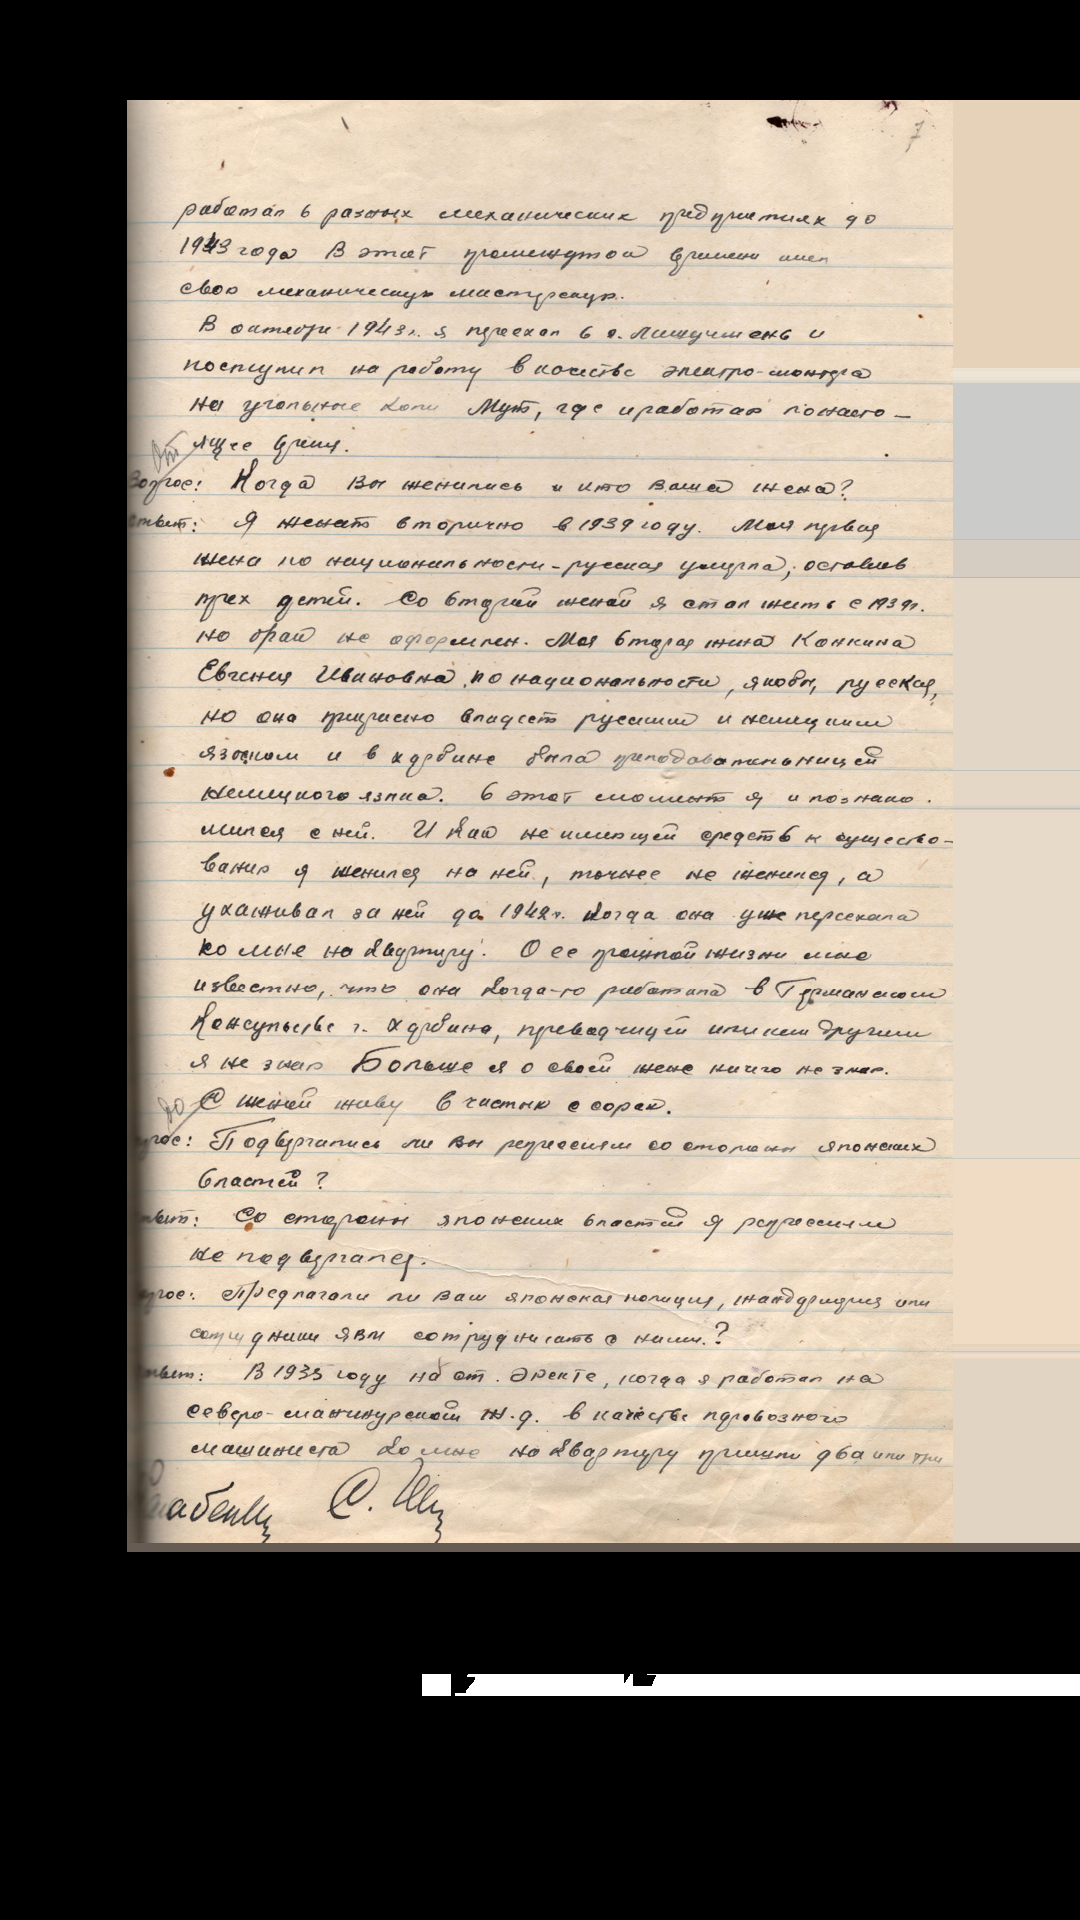 7
работал в разных механических предприятиях до
1943 года В этот промежуток времени имел
свою механическую мастерскую.
В октябре 1943 г. я переехал в г.
поступил на работу в качестве электро-монтера
на угольные копи где и работаю по насто-
ящее время.
от
Вопрос: Когда Вы женились и кто Ваша жена?
Ответ: Я женат вторично в 1939 году. Моя первая
жена по национальности - русская умерла, оставив
трех детей. Со второй женой я стал жить с 1939 г.
но брак не оформлен. Моя вторая жена Конкина
Евгения Ивановна, по национальности, якобы, русская,
но она прекрасно владеет русским и немецким
языком и в Харбине была преподавательницей
немецкого языка. В этот момент я и познако-
мился с ней. И как не имеющей средств к существо-
ванию я женился на ней, точнее не женился, а
ухаживал за ней до 1942 г. когда она уже переехала
ко мне на квартиру. О ее прошлой жизни мне
известно, что она когда-то работала в Германском
Консульстве г. Харбина, переводчицей или кем другим
я не знаю Больше я о своей жене ничего не знаю.
до С женой живу в частых ссорах.
Вопрос: Подвергались ли Вы репрессиям со стороны японских
властей?
Ответ: Со стороны японских властей я репрессиям
не подвергался.
Вопрос: Предлагали ли Вам японская полиция, жандармерия или
сотрудники ЯВМ сотрудничать с ними?
Ответ: В 1935 году на ст. Эректе, когда я работал на
северо-манчжурской ж.д. в качестве паровозного
машиниста ко мне на квартиру пришли два или три